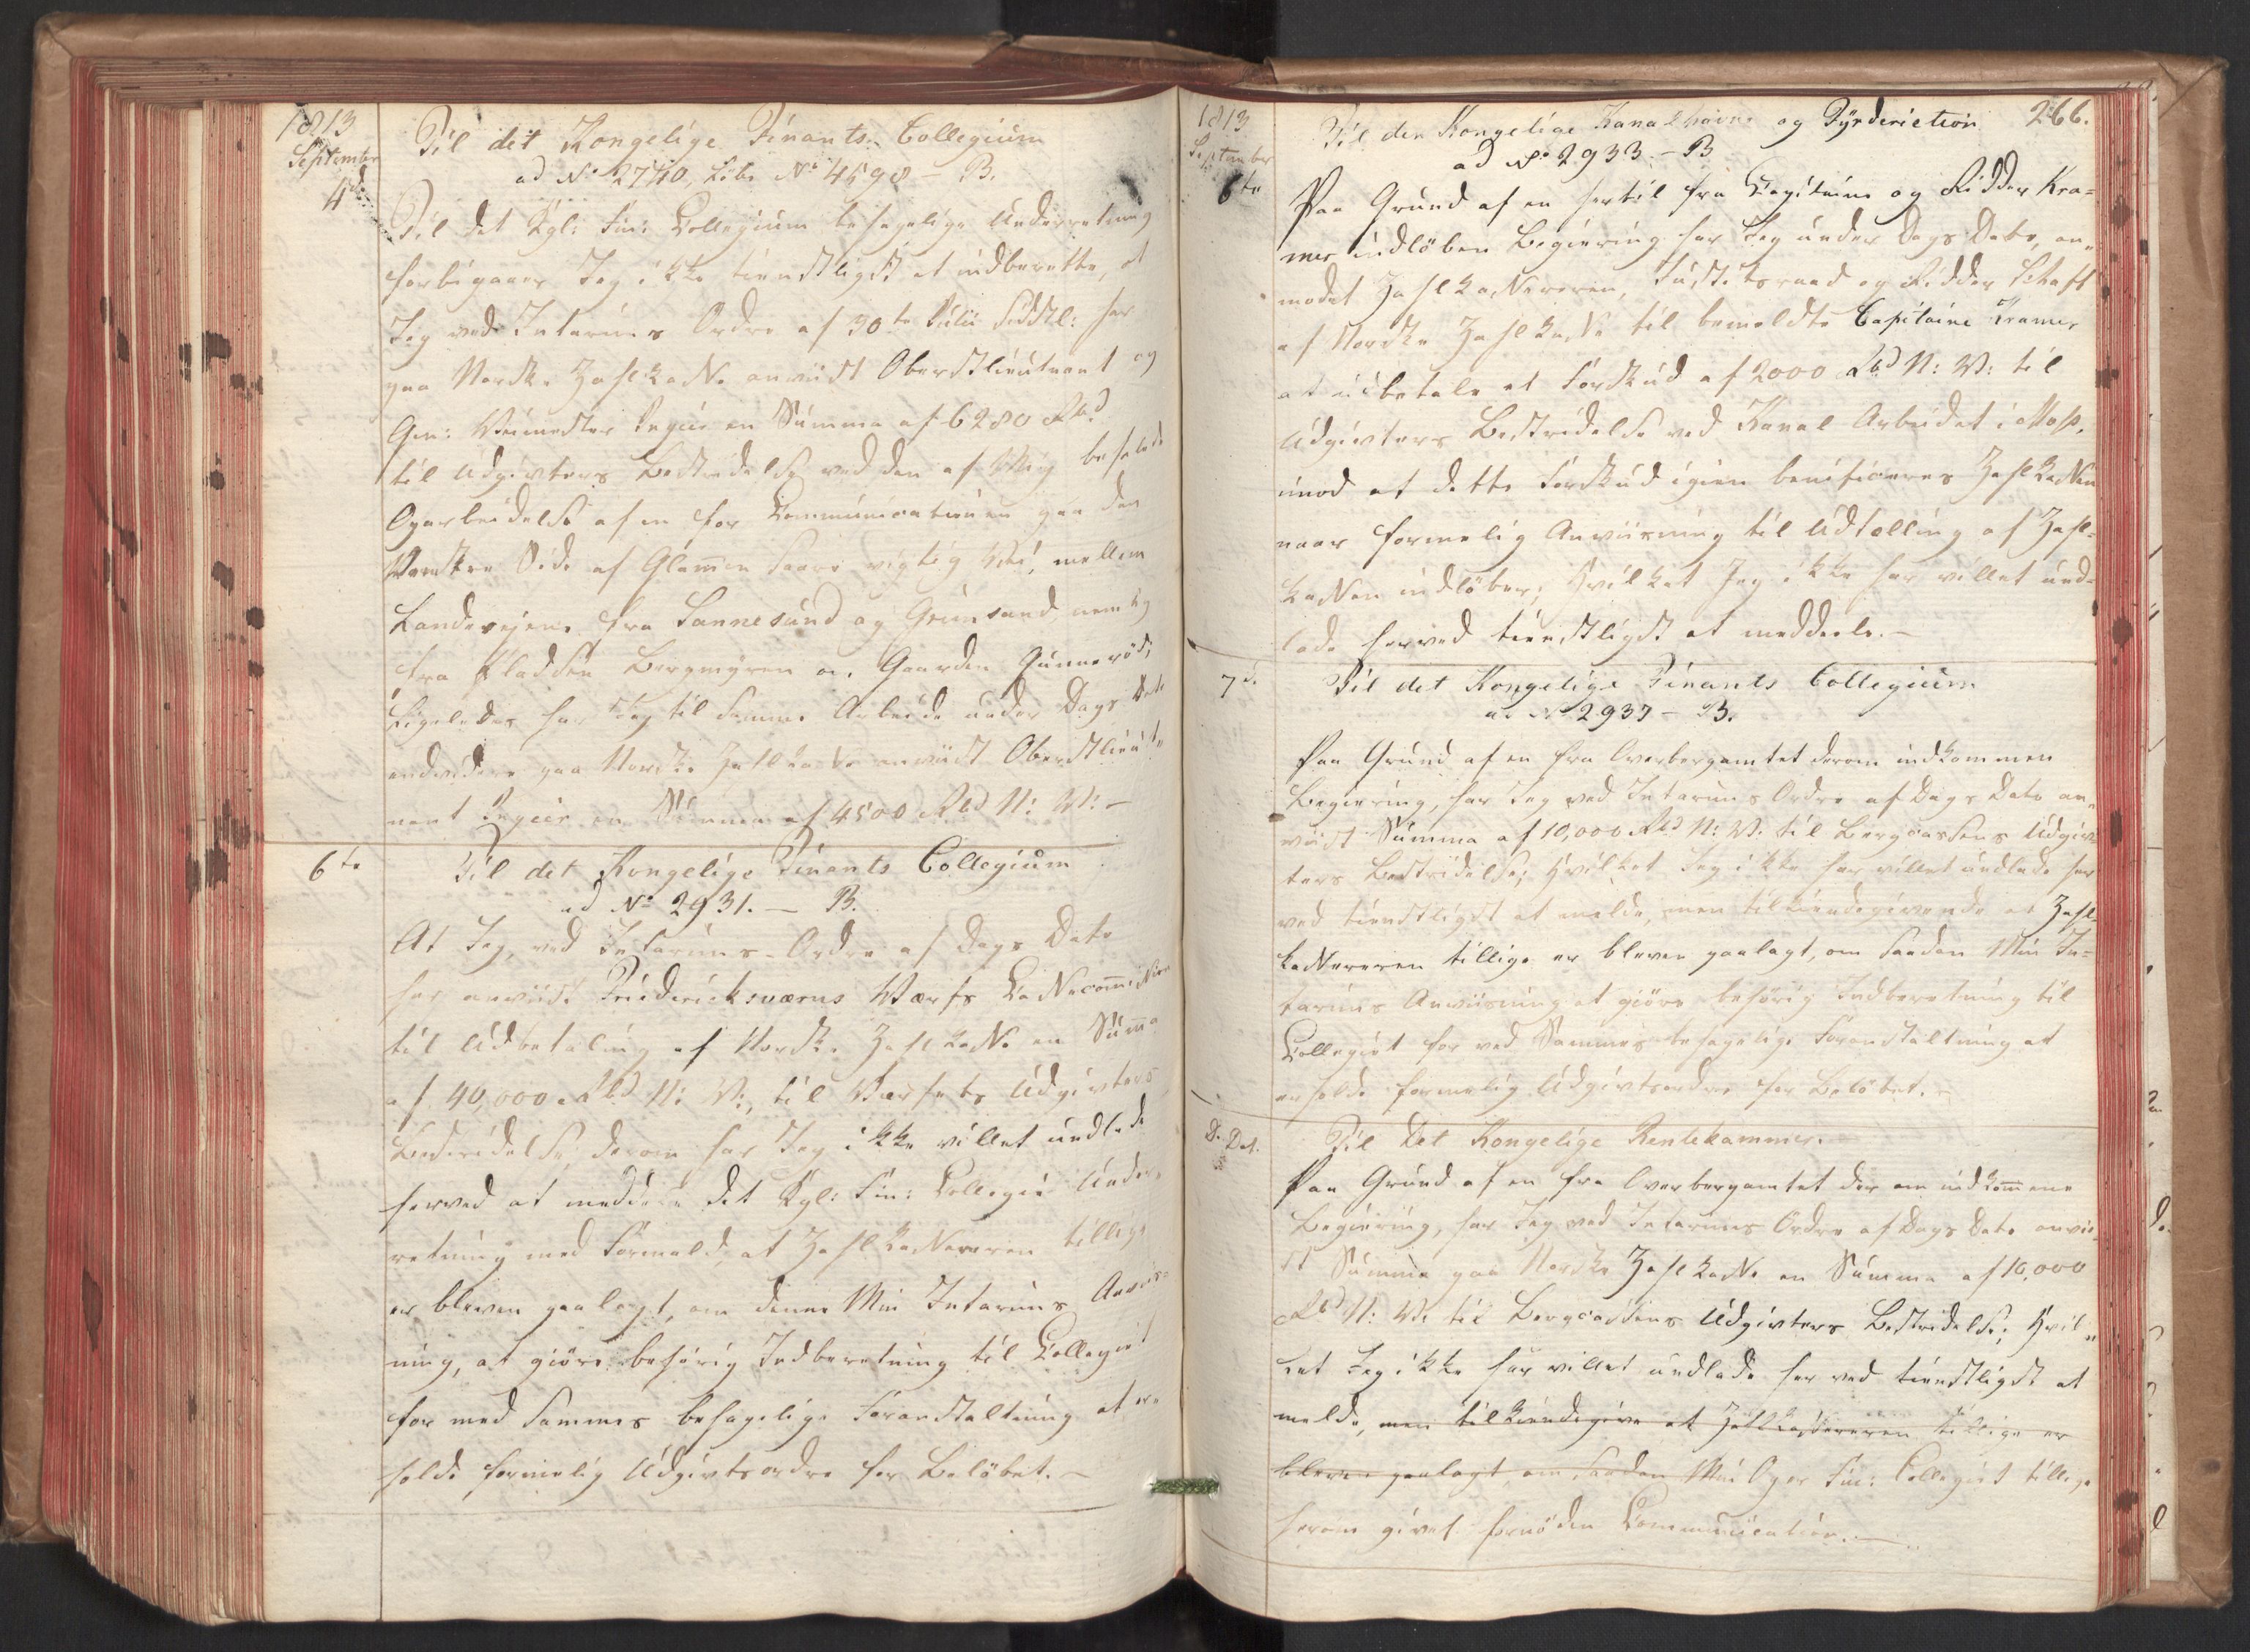 1813
September
4de
Til det Kongelige Finants-Collegium
ad No 2740, Litr. No 4598 - B.
Til det Kgl: Fin: Collegium behagelige Underretning
forbigaaer Jeg ikke tienstligst at indberette, at
Jeg ved Interims Ordre af 30te Julii sidstl: har
paa Norske Zahlkasse anviist Oberstlieutnant og
Gen: Veimester Peguir en Summa af 6280 Rbd
til Udgivters Bestridelse ved den af Mig befalede
Oparbeidelse af en for Communicationen paa den
Venstre Side af Glommen saare vigtig Vei, mellem
Landeveiene fra Sannesund og Grimsund nemlig
fra Pladsen Bergmyren Gaarden Gunnerød;
Ligeledes har Jeg til samme Arbeide under Dags Dato
endvidere paa Norske Zahlkasse anviist Oberstlieut-
nant Peguir en Summa af 4500 Rbd N: V: -
6te
Til det Kongelige Finants Collegium
ad No 2931. - B.
At Jeg, ved Interims-Ordre af Dags Dato
har anviist Friderichsværns Værfs Cassecommission
til Udbetaling af Norske Zahlkasse en Summa
af 40,000 Rbd N: V:, til Værfets Udgivters
Bestridelse, derom har Jeg ikke villet undlade
herved at meddele det Kgl: Fin: Collegie Under-
retning med Formeld, at Zahlkassereren tillige
er bleven paalagt, om denne Min Interims Anviis-
ning, at giöre behörig Indberetning til Collegiet
for med Sammes behagelige Foranstaltning at er-
holde formelig Udgivtsordre for Belöbet. -
1813
September
6te
266.
Til den Kongelige Kanal havne og Fyrdirection
ad No 2933 - B
Paa Grund af en hertil fra Capitaine og Ridder Kra-
mer indlöben Begiering har Jeg under Dags Dato, an-
modet Zahlkassereren, Justitsraad og Ridder Schaft
af Norske Zahlkasse til bemeldte Capitaine Kramer
at udbetale et Forskud af 2000 Rbd N: V: til
Udgivters Bestridelse ved Kanal Arbeidet i Moss,
imod at dette Forskud igien beneficeres Zahlkassen
naar formelig Anviisning til Udtælling af Zahl-
kassen indlöber; hvilket Jeg ikke har villet und-
lade herved tienstligst at meddeele. -
7de
Til det Kongelige Finants Collegium
ad No 2937 - B.
Paa Grund af en fra Overbergamtet derom indkommen
Begiering, har Jeg ved Interims Ordre af Dags Dato an-
viist Summa af 10,000 Rbd N: V. til Bergcassens Udgiv-
ters Bestridelse; Hvilket Jeg ikke har villet undlade her
ved tienstligst at melde, men tilkiendegivende at Zahl-
kassereren tillige er bleven paalagt, om saadan Min In-
terims Anviisning at giöre behörig Indberetning til
Collegiet for ved Sammes behagelige Foranstaltning at
erholde formelig Udgivtsordre for Belöbet. -
D. Dat.
Til Det Kongelige Rentekammer.
Paa Grund af en fra Overbergamtet derom indkommene
Begiering, har Jeg ved Interims Ordre af Dags Dato anvii-
st Summa paa Norske Zahlkasse en Summa af 10,000
Rbd N: V. til Bergcassens Udgivters Bestridelse; Hvil-
ket Jeg ikke har villet undlade herved tienstligst at
melde, men tilkiendegive at Zahlkassereren tillige er
bleven paalagt, om saadan Min Fin: Collegiet tillige
herom givet fornöden Communication. -